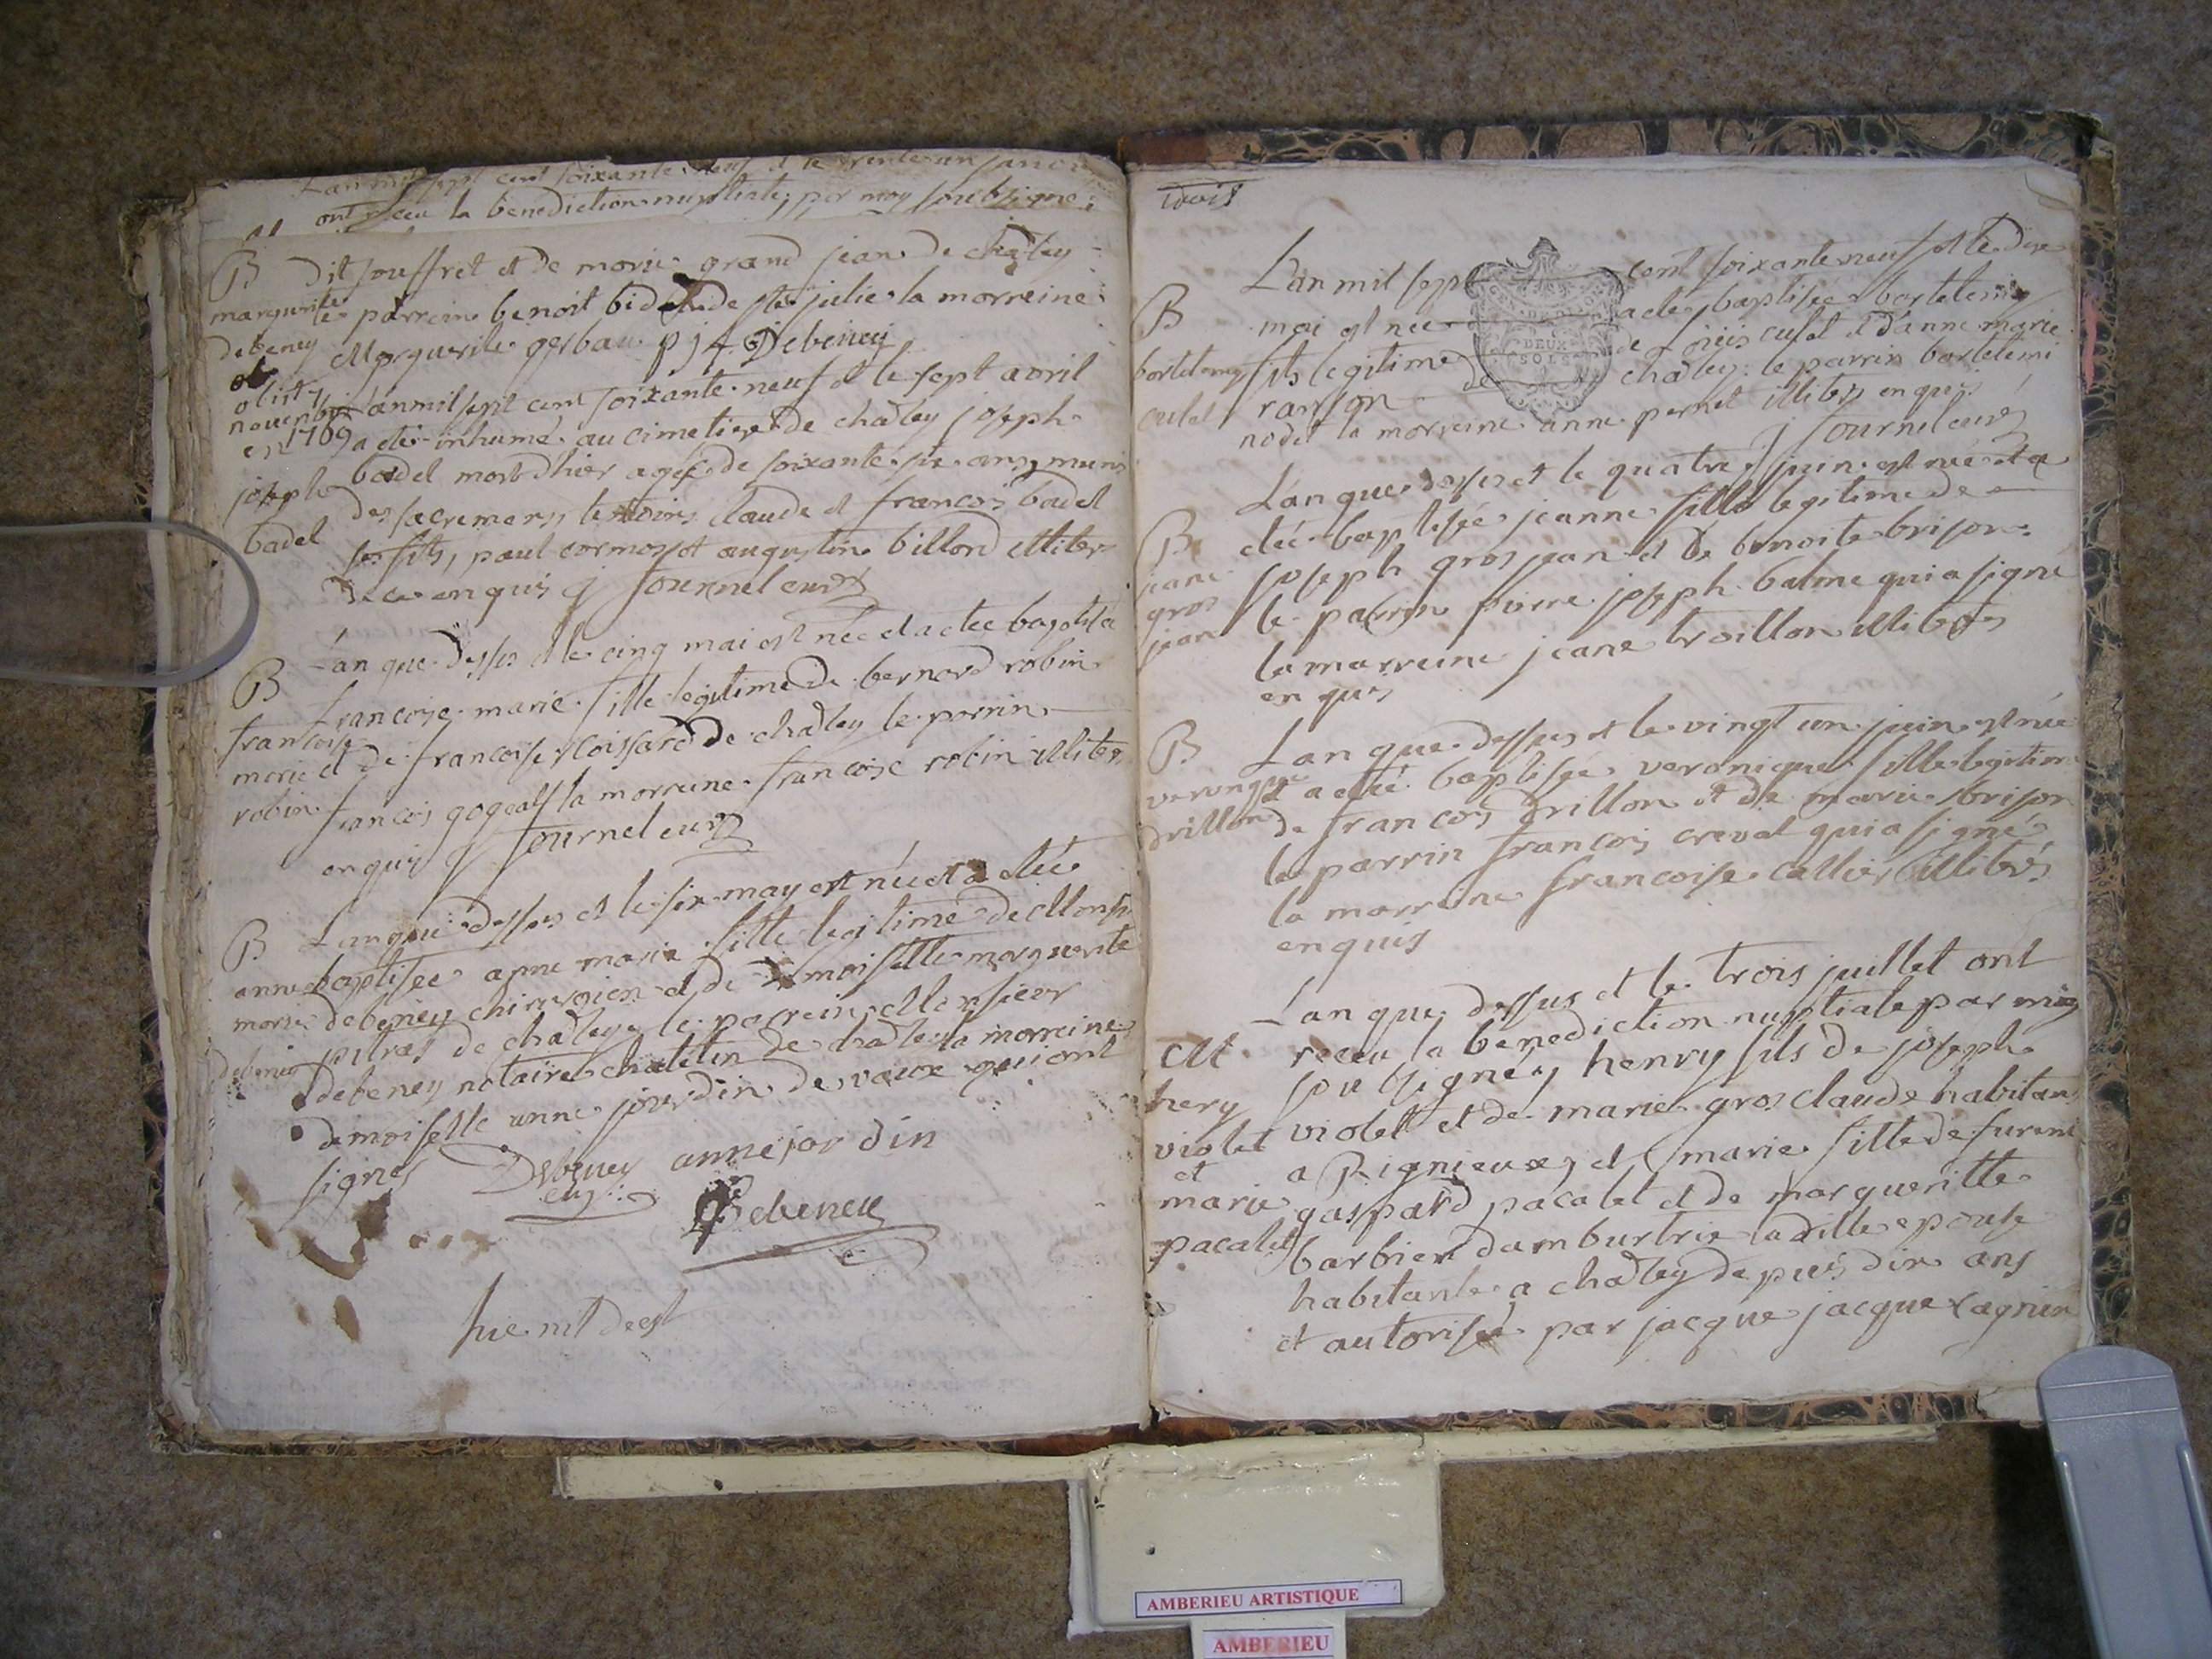 Lan mil sept cent soixante neuf et le trente un janv
ont receu la benediction nuptiale par moy soubsigne
B
dit souffret et de marie grand jean de chatey
margueritte
debeney
le parrein benoit bidet de ste julie la marreine
Marguerite gerbau p j f Debeney
obiit
novembris
en 1769
L'an mil sept cent soixante neuf et le sept avril
a eté inhumé au cimetiere de chatey joseph
joseph
badel
badel mort dhier agé de soixante six ans muni
des sacremens temoins claude et francois badel
ses fils, paul cormos et augustin billond illiter
de ce enquis j fournel curé
B
francoise
marie
robin
L'an que dessus et le cinq mai est née et a etee baptisee
francoise marie fille legitime de bernard robin
et de francoise coissard de chatley le parrin
francois gogeat la marreine francoise robin illiter
enquis j fournel curé
B
anne
marie
debeney
Lan que dessus et le six may est née et a eteé
baptisee anne marie fille legitime de Monsr
debeney chirurgien et de demoiselle marguerite
pitras de chatley le parrein Monsieur
debeney notaire chatelin de chatley la marreine
demoiselle anne jourdin de vaux qui ont
signés
Debeney anne jor din
Debeney
hic nil deest
trois
B
bartelemy
culet
L'an mil sept cent soixante neuf et le dixe
DEUX
SOLS
mai est nee a ete baptisée bartelemi
fils legitime de louis culet et d'anne marie
ranson de chatley le parrin bartelemi
nodet la marreine anne pernet illiteres enquis
j fournel curé
B
jeane
gros
jean
L'an que dessus et le quatre juin est née et a
etéé baptisée jeanne fille legitime de
joseph gros jean et de benoite brison
le parrin pierre joseph balme qui a signé
la marreine jeane troillon illiteres
enquis
B
veronique
drillon
Lan que dessus et le vingt un juin est née
et a eté baptisée veronique fille legitime
de francois drillon et de marie brison
le parrin francois creval qui a signé
la marreine francoise callier illiterés
enquis
M
hery
violet
et
marie
pacalet
Lan que dessus et le trois juillet ont
receu la benediction nuptiale par moy
soubsigné, henry fils de joseph
violet et de marie gros claude habitans
a Rignieux, et marie fille de furent
gaspard pacalet et de margueritte
barbier damburtrie ladille epouse
habitante a chatley depuis dix ans
et autorisée par jacque jacque Cagnin
AMBERIEU ARTISTIQUE
AMBERIEU